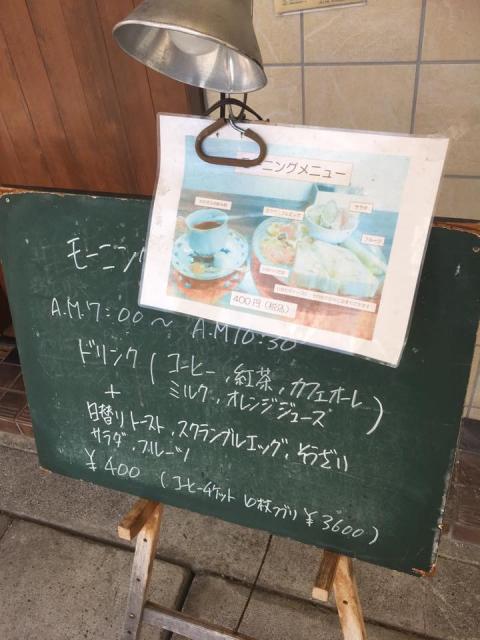 ーニングメニュー
サラダ
フルーツ
400円(税込)
モーニング
A.M.7:00〜 A.M10:30
ドリンク(コーヒー,紅茶,カフェオーレ
ミルク,オレンジジュース)
+
日替りトースト,スクランブルエッグ,そうざい
サラダ,フルーツ
¥400 (コーヒーチケット 10枚つづり ¥3600)